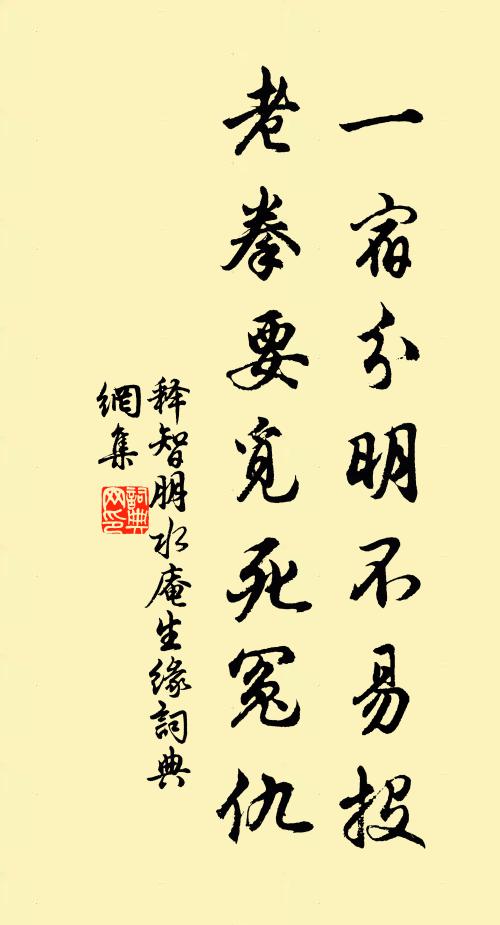 一宿分明不易投
老拳要覓死冤仇
释智朋水庵生緣詞典
網集
詞典網印